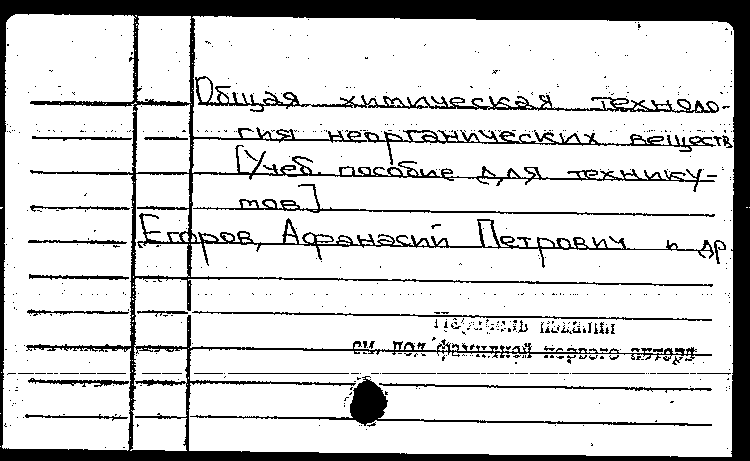 Общая химическая техноло-
гия неорганических веществ
[Учеб. пособие для технику-
мов].
Егоров, Афанасий Петрович и др
Перечень издания
см. под фамилией первого автора